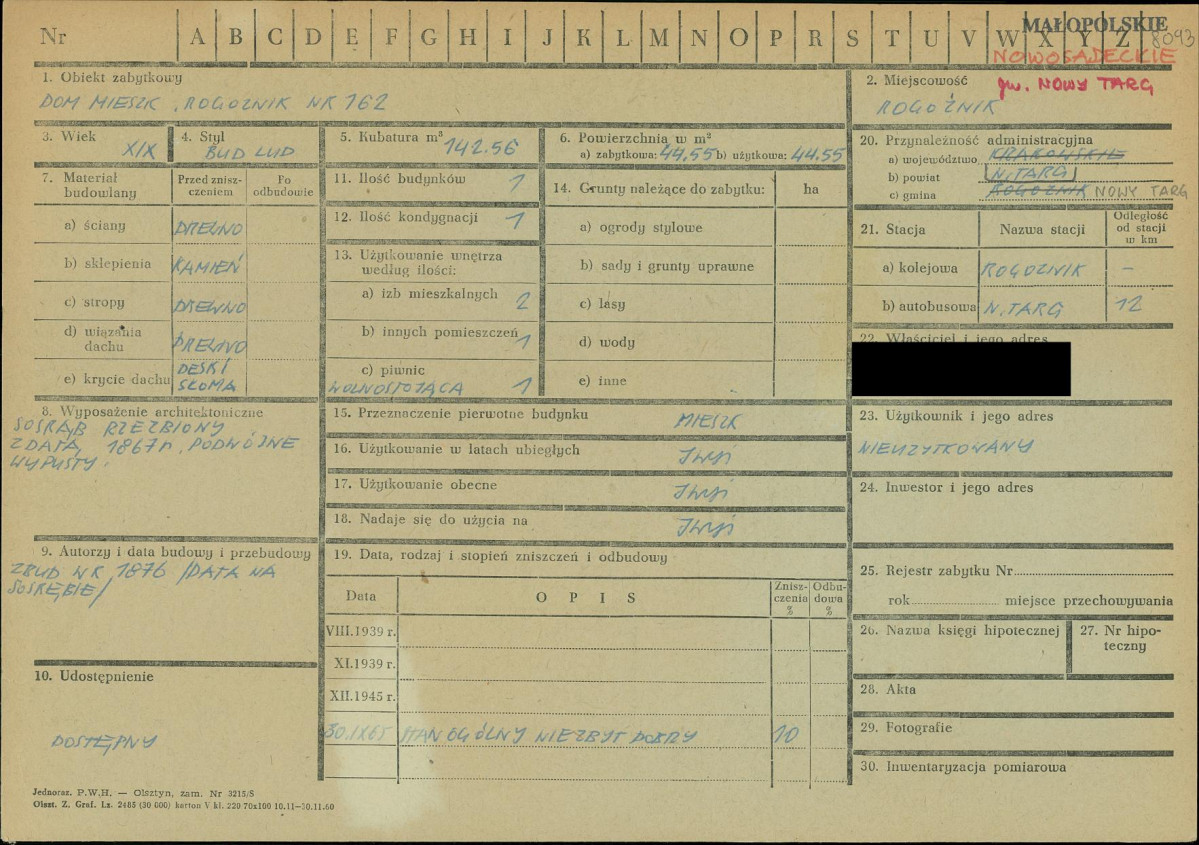 Nr A B C D E F G H I J K L M N O P R S T U V W X Y Z
MAŁOPOLSKIE
8093
NOWOSĄDECKIE
gw. NOWY TARG
1. Obiekt zabytkowy
DOM MIESZK, ROGOŹNIK NR 162
2. Miejscowość
ROGOŹNIK
3. Wiek
XIX
4. Styl
BUD LUD
5. Kubatura m³
142.56
6. Powierzchnia w m²
a) zabytkowa: 44,55 b) użytkowa: 44.55
7. Materiał budowlany
Przed zniszczeniem
Po odbudowie
a) ściany DREWNO
b) sklepienia KAMIEŃ
c) stropy DREWNO
d) wiązania dachu DREWNO
e) krycie dachu DESKI SŁOMA
8. Wyposażenie architektoniczne
SOSRĄB RZEŹBIONY
Z DATĄ 1867 r, PODWÓJNE
WYPUSTY.
9. Autorzy i data budowy i przebudowy
ZBUD W R 1876 /DATA NA
SOSRĘBIE/
10. Udostępnienie
DOSTĘPNY
11. Ilość budynków 1
12. Ilość kondygnacji 1
13. Użytkowanie wnętrza
według ilości:
a) izb mieszkalnych 2
b) innych pomieszczeń 1
c) piwnic
WOLNOSTOJĄCA 1
14. Grunty należące do zabytku: ha
a) ogrody stylowe
b) sady i grunty uprawne
c) lasy
d) wody
e) inne
15. Przeznaczenie pierwotne budynku MIESZK
16. Użytkowanie w latach ubiegłych
17. Użytkowanie obecne
18. Nadaje się do użycia na
19. Data, rodzaj i stopień zniszczeń i odbudowy
Data OPIS Zniszczenia % Odbudowa %
VIII.1939 r.
XI.1939 r.
XII.1945 r.
30.IX65 STAN OGÓLNY NIEZBYT DOBRY 10
20. Przynależność administracyjna
a) województwo KRAKOWSKIE
b) powiat N.TARG
c) gmina ROGOŹNIK NOWY TARG
21. Stacja Nazwa stacji Odległość od stacji w km
a) kolejowa ROGOŹNIK –
b) autobusowa N.TARG 12
22. Właściciel i jego adres
23. Użytkownik i jego adres
NIEUŻYTKOWANY
24. Inwestor i jego adres
25. Rejestr zabytku Nr
rok miejsce przechowywania
26. Nazwa księgi hipotecznej
27. Nr hipoteczny
28. Akta
29. Fotografie
30. Inwentaryzacja pomiarowa
Jednoraz. P.W.H. — Olsztyn, zam. Nr 3215/S
Olszt. Z. Graf. Lz. 2485 (30 000) karton V kl. 220 70x100 10.11—30.11.60